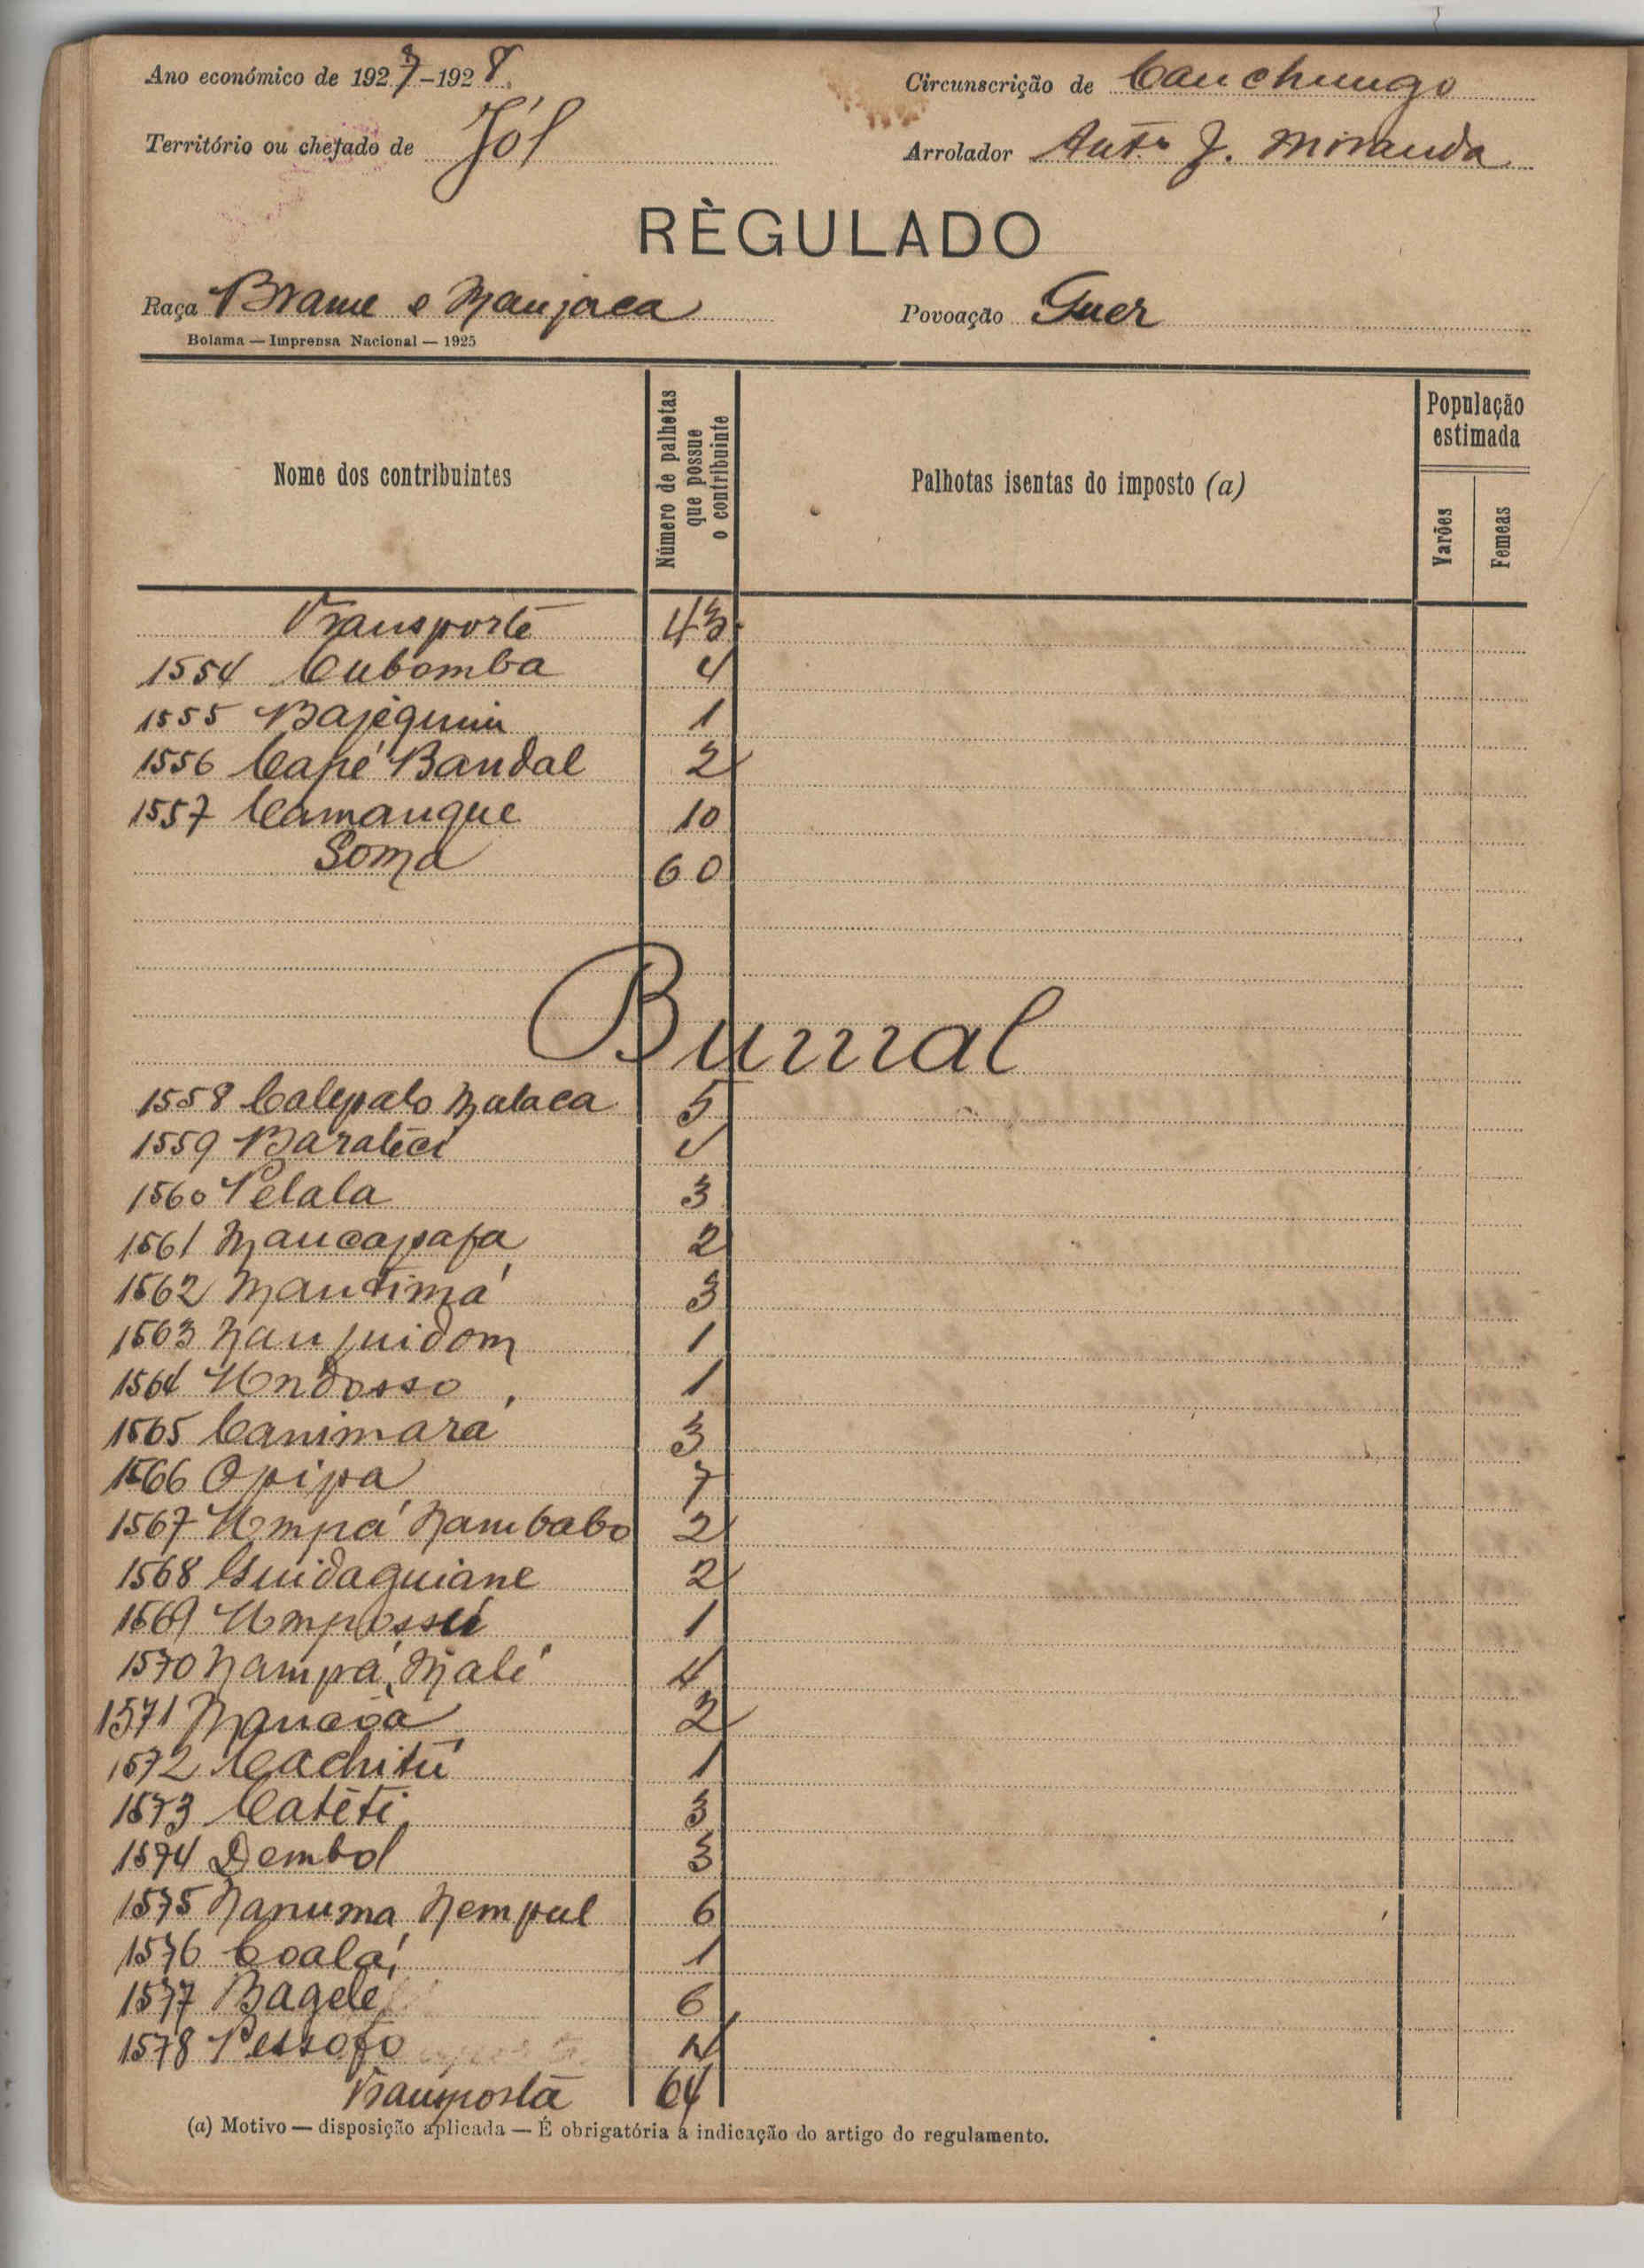 Ano económico de 1927-1928.
Circunscrição de Canchungo
Território ou chefado de Jól
Arrolador Antº J. Miranda
RÈGULADO
Raça Brame e Manjaca
Povoação Guer
Bolama — Imprensa Nacional — 1925
Nome dos contribuintes
Número de palhotas que possue o contribuinte
Palhotas isentas do imposto (a)
População estimada
Varões
Femeas
Transporte 43
1554 Cubomba 4
1555 Bajéquim 1
1556 Capé Bandal 2
1557 Camangue 10
Soma 60
Burnal
1558 Calepalo Malaca 5
1559 Baratéci
1560 Pelala 3
1561 Mancapafa 2
1562 Mantimá 3
1563 Nanjuidom 1
1564 Undosso 1
1565 Canimará 3
1566 Opipa 7
1567 Umpá Nambabo 2
1568 Guidaguiane 2
1569 Umpossu 1
1570 Nampá Malé 4
1571 Mancoà 2
1572 Cachitú 1
1573 Catéti 3
1574 Dembol 3
1575 Nanuma Nempul 6
1576 Coalá 1
1577 Bagele 6
1578 Pessofo
Transporta 64
(a) Motivo — disposição aplicada — É obrigatória a indicação do artigo do regulamento.